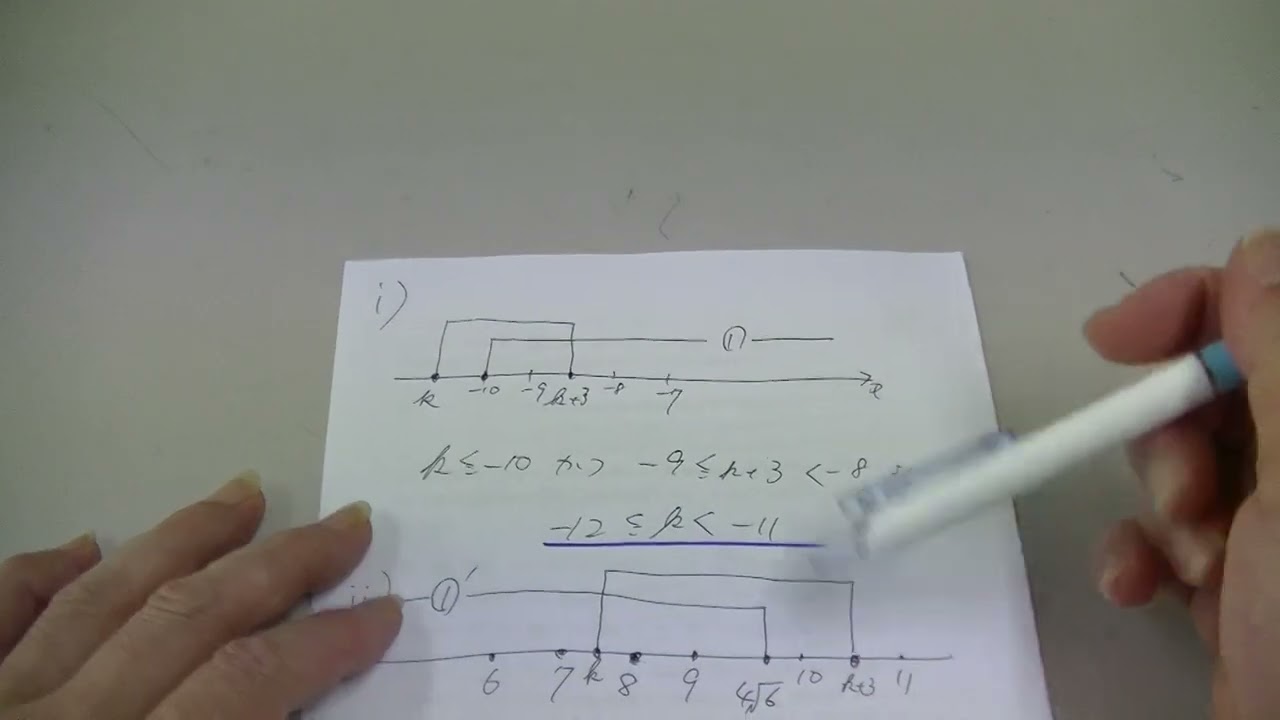 i)
①
k -10 -9 k+3 -8 -7 x
k ≦ -10 かつ -9 ≦ k+3 < -8
-12 ≦ k < -11
ii) ①′
6 7 k 8 9 4√6 10 k+3 11